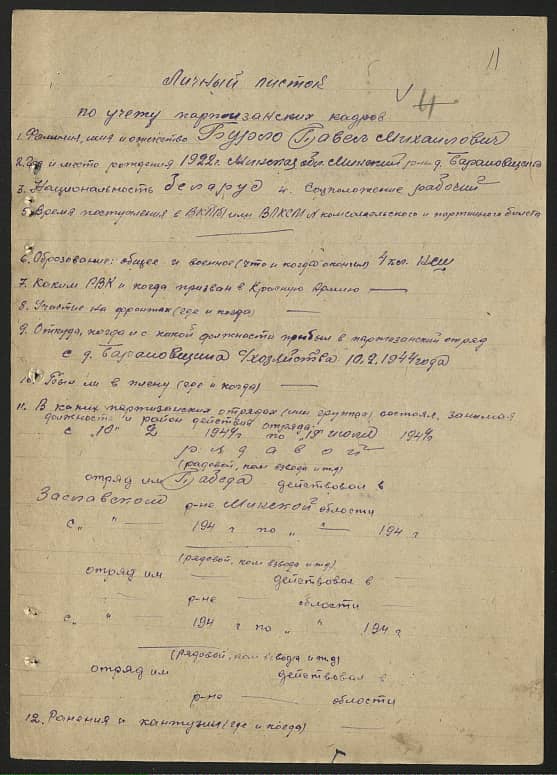 11
4
Личный листок
по учету партизанских кадров
1. Фамилия, имя и отчество Бурло Павел Михайлович
2. Год и место рождения 1922 г. Минская обл. Минский р-н д. Барановщина
3. Национальность беларус 4. Соцположение рабочий
5. Время поступления в ВКП/б/ или ВЛКСМ № комсомольского и партийного билета
6. Образование: общее и военное (что и когда окончил) 4 кл.
7. Каким РВК и когда призван в Красную Армию —
8. Участие на фронтах (где и когда) —
9. Откуда, когда и с какой должности прибыл в партизанский отряд
с д. Барановщина с/хозяйства 10.2.1944 года
10. Был ли в плену (где и когда) —
11. В каких партизанских отрядах (или группах) состоял, занимая
должность и район действия отряда:
с "10" 2 1944 г по "18" июля 1944 г
рядовой
(рядовой, ком взвода и тд)
отряд им Победа действовал в
Заславском р-не Минской области
с " " — 194 г по " — " 194 г
(рядовой, ком взвода и тд)
отряд им — действовал в —
— р-не — области
с " " — 194 г по " " 194 г
(рядовой, ком взвода и тд)
отряд им действовал в
р-не области
12. Ранения и контузии (где и когда) —